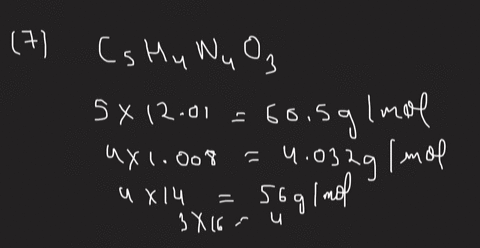 (7) C5H4N4O3
5 × 12.01 = 60.5g/mol
4×1.008 = 4.032g/mol
4 ×14 = 56g/mol
3×16 = 4